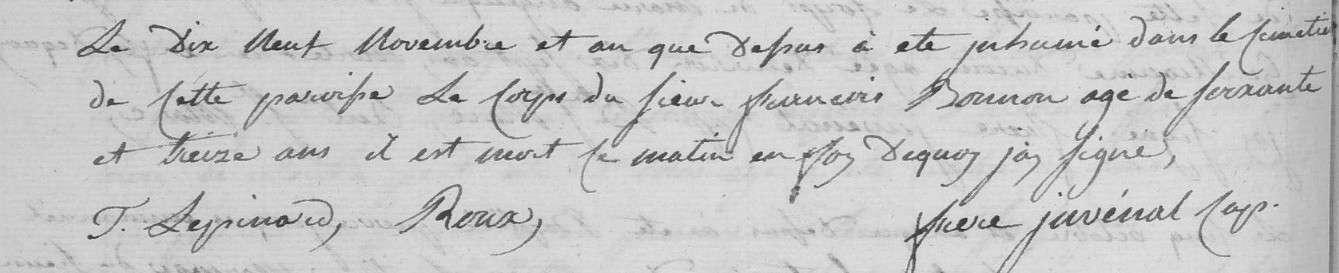 Le Dix Neuf Novembre et an que Dessus à eté inhumé dans le Cimetier
de Cette paroisse Le Corps du sieur francois Bonnon agé de soixante
et treize ans il est mort Ce matin en foy Dequoy jay signé,
T. Lepinard, Roux, frere juvénal Cap.